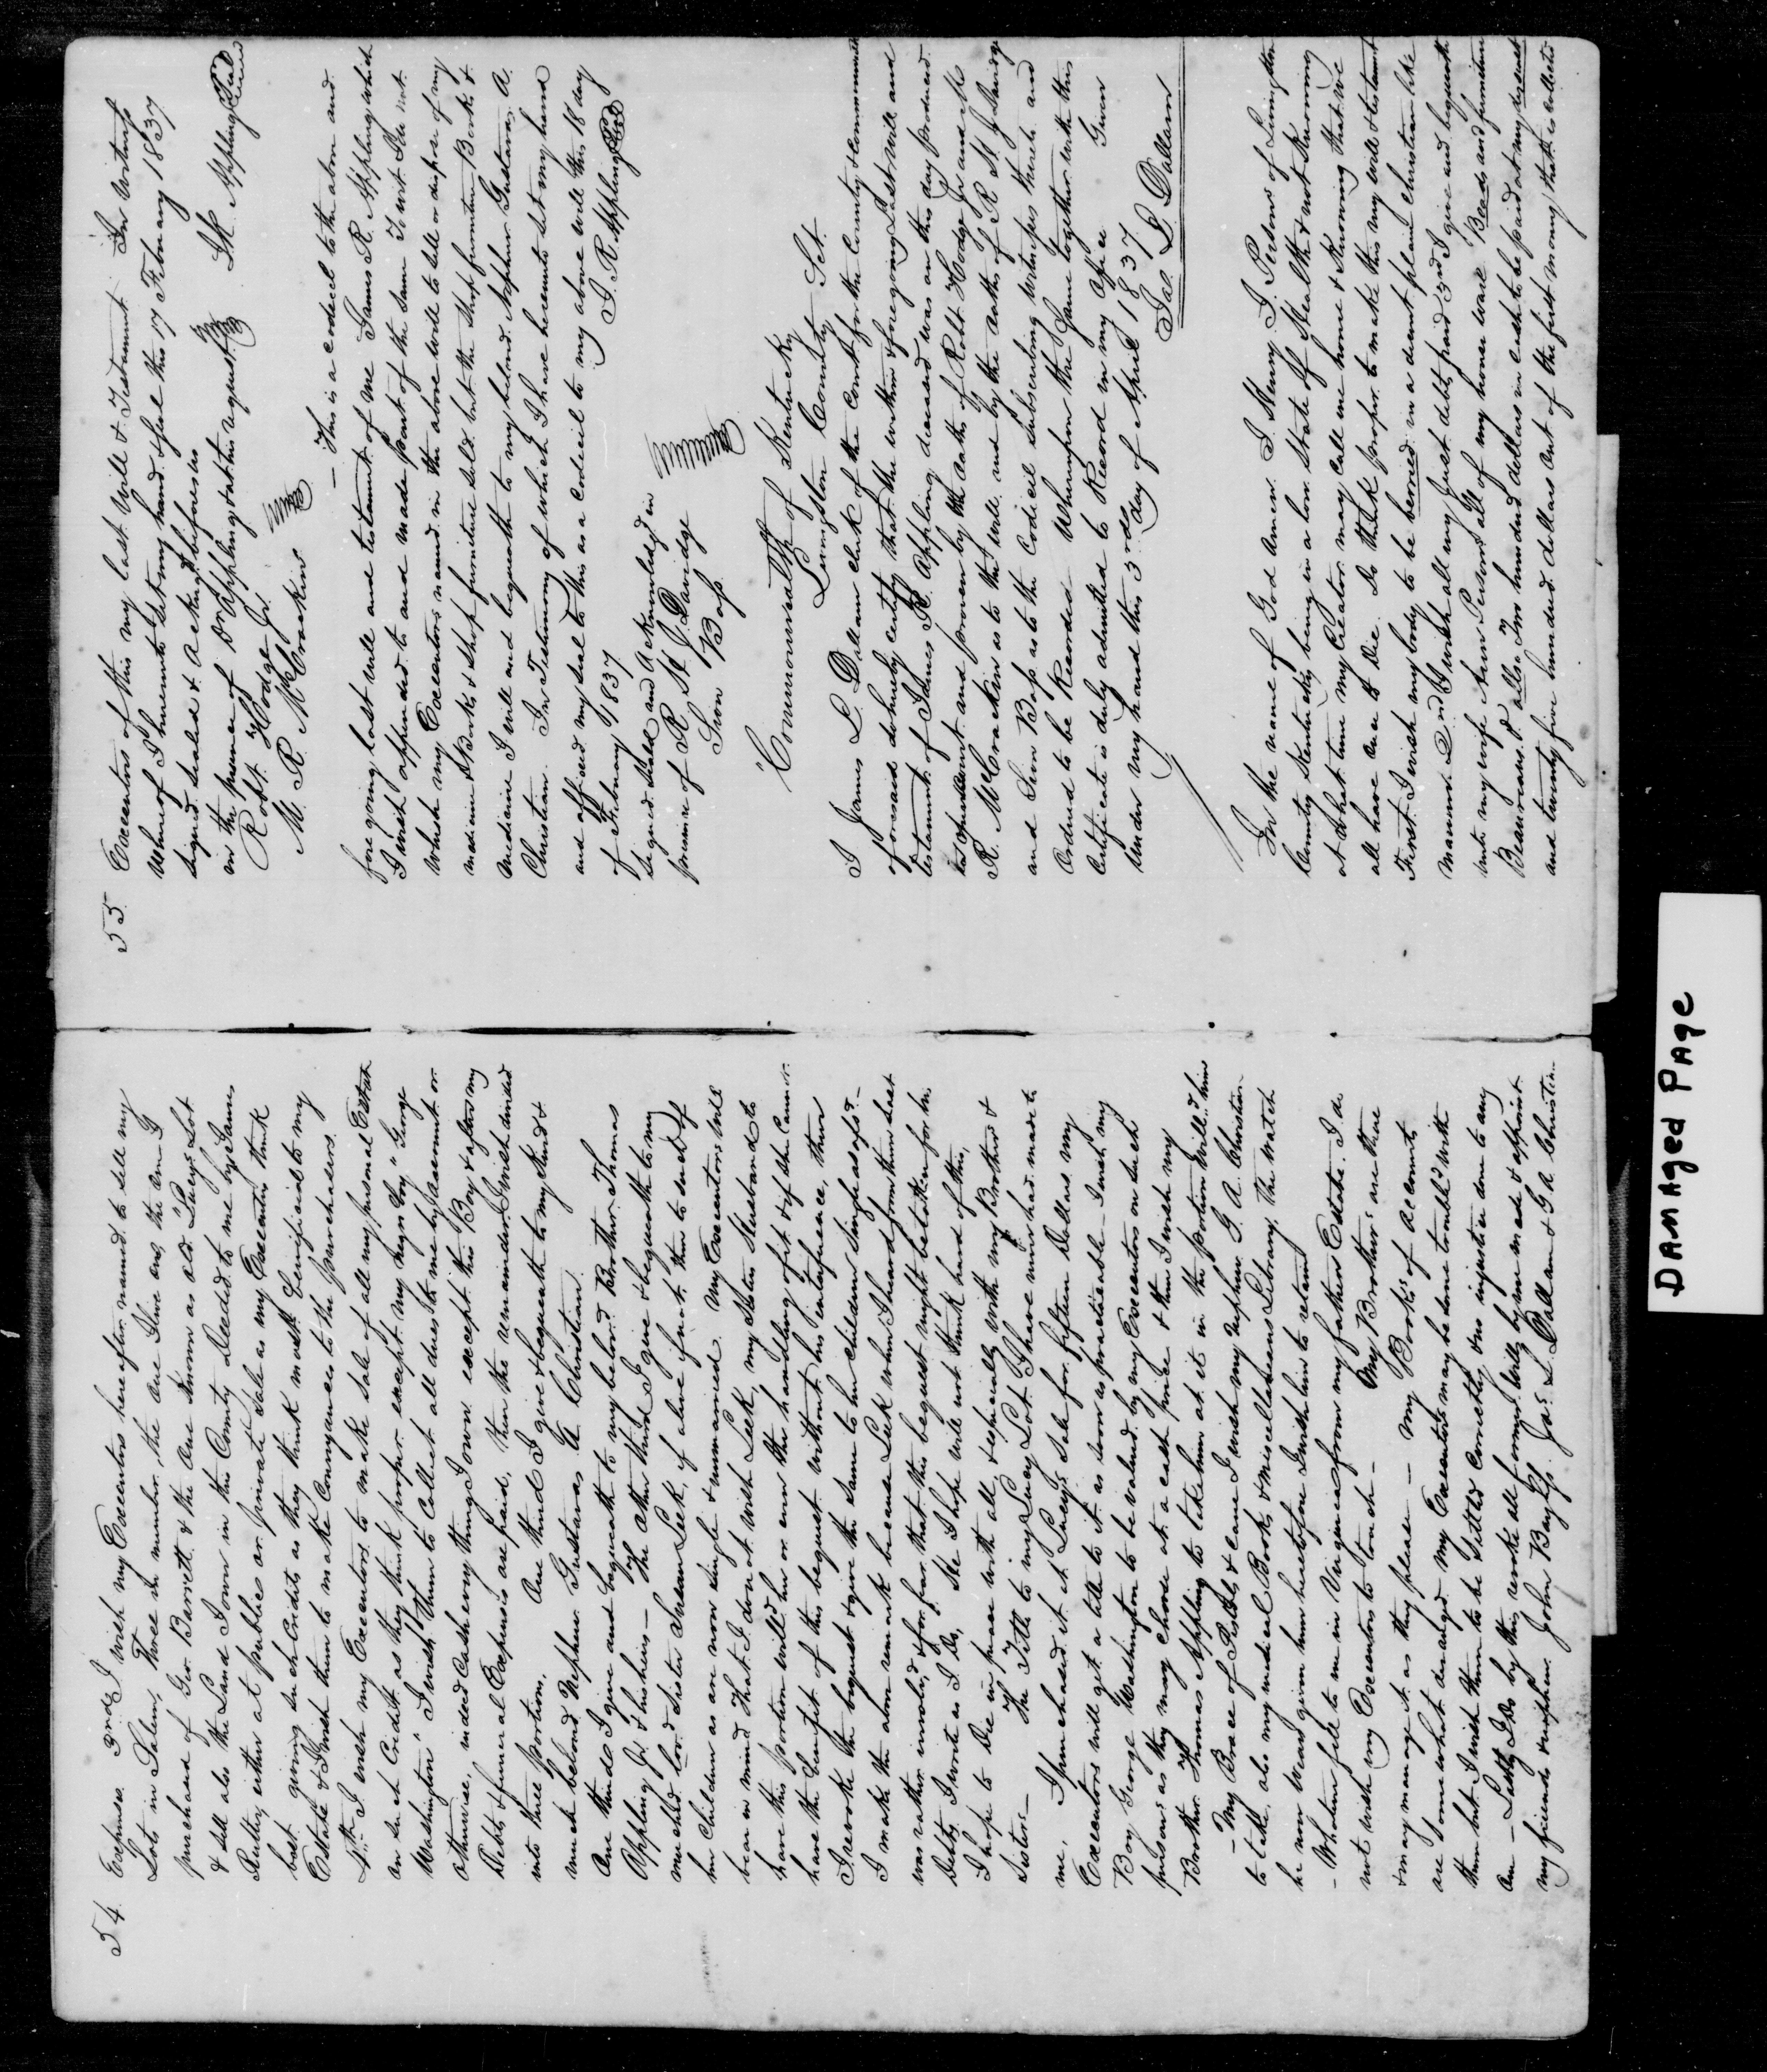 54.
Expenses. 3rd. I wish my Executors hereafter named to sell my
Lots in Salem, Three in number, the one I live on, the one I
purchased of Geo. Barrett & the one Known as old "Lucy's Lot
& sell also the Land I own in this County Deeded to me by James
Rutter, either at public or private Sale as my Executors think
best giving such Credits as they think most benificial to my
Estate & I wish them to make Conveyances to the purchasers.
4th. I wish my Executors to make Sale of all my personal Estate
on such Credit as they think proper except my negro Boy "George
Washington" I wish them to Collect all dues to me by account or
otherwise, indeed Cash every thing I own except this Boy & after my
Debts & funeral Expenses are paid, then the remainder I wish divided
into three portions. One third I give & bequeath to my kind &
much beloved Nephew Gustavus A. Christian.
One third I give and bequeath to my belov'd Brother Thomas
Appling Jr. & his heirs — The other third I give & bequeath to my
much belov'd Sister Susan Leek, if alive if not, then to such of
her Children as are now single & unmarried. My Executors will
bear in mind that I don't wish Leek, my Sisters Husband to
have this portion will'd her or even the handling of it & if she Cannot
have the benefit of this bequest without his interference, then
I revoke the bequest & give the same to her children single as afsd. —
I make the above remark because Leek when I heard from them last
was rather involv'd & for fear that this bequest might be taken for his
Debts, I wrote as I do, He I hope will not think hard of this,
I hope to Die in peace with all & especially with my Brother &
Sisters — The Title to my Lucy Lot I have never had made to
me, I purchased it at Lucy's Sale for fifteen Dollars my
Executors will get a title to it as soon as practicable — I wish my
Boy George Washington to be valued by my Executors or such
persons as they may choose at a cash price & then I wish my
Brother Thomas Appling to take him at it in the portion will'd him
— My Brace of Pistols & cane I wish my nephew G. A. Christian
to take, also my medical Books & miscellaneous Library, the watch
he now wears given him heretofore I wish him to retain
— Whatever fell to me in Virginia from my fathers Estate I do
not wish my Executors to touch — My Brothers are there
& may manage it as they please — My Books of accounts
are somewhat deranged my Executors may be some troubl'd with
them but I wish them to be settled correctly & no injustice done to any
one — Lastly I Do by this revoke all former Wills by me made & appoint
my friends & nephew John Bayliss. Jas. L. Dallam & G A Christian
55.
Executors of this my last Will & Testament In Witness
Whereof I hereunto set my hand & seal this 17 February 1837
Signed Sealed & Acknowledged before us
in the presence of Dr Appling & at his request J. R. Appling Seal
Robt Hodge Jr.
M. R. McCrackin
— This is a codicil to the above and
fore going last will and testament of me James R. Appling which
I wish appended to and made part of the same To wit I do not
Wish my Executors named in the above will to sell or dispose of my
medicine & Books & Shop furniture sold but the Shop furniture Books &
Medicine I will and bequeath to my belov'd Nephew Gustavus A.
Christian. In Testimony of which I have hereunto set my hand
and affixed my seal to this as a codicil to my above will this 18 day
of February 1837 J. R. Appling Seal
Signed Sealed and Acknowledged in
presence of R. H. J. Davidge
Sion Bass
Commonwealth of Kentucky
Livingston County Sct.
I James L. Dallam clerk of the Court for the County & Commonwealth
aforesaid do hereby certify that the within & foregoing Last Will and
testament of James R. Appling deceased was on this day produced
and proven by the oaths of Robt Hodge Jr and M
R. McCrackin as to the will and by the oaths of R H J Davidge
and Sion Bass as to the Codicil subscribing witnesses thereto and
Ordered to be Recorded Whereupon the Same together with this
Certificate is duly admitted to Record in my office Given
Under my hand this 3rd day of April 1837.
Jas. L. Dallam
In the name of God Amen. I Henry J. Persons of Livingston
County Kentucky being in a low State of Health & not Knowing
at what time my Creator may call me home & Knowing that we
all have one to Die. Do think proper to make this my will & testament
First. I wish my body to be berried in a decent plain christian like
manner. 2nd I wish all my Just debts paid 3rd I give and bequeath
unto my wife Persons all of my house ware Beads and furniture
Beaureaus & also Two hundred dollars in cash to be paid at my request
and twenty five hundred dollars out of the first money that is collected
DAMAGED PAGE